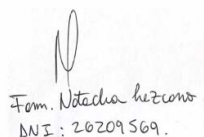 Fam. Natacha Lezcano
DNI: 26209569.